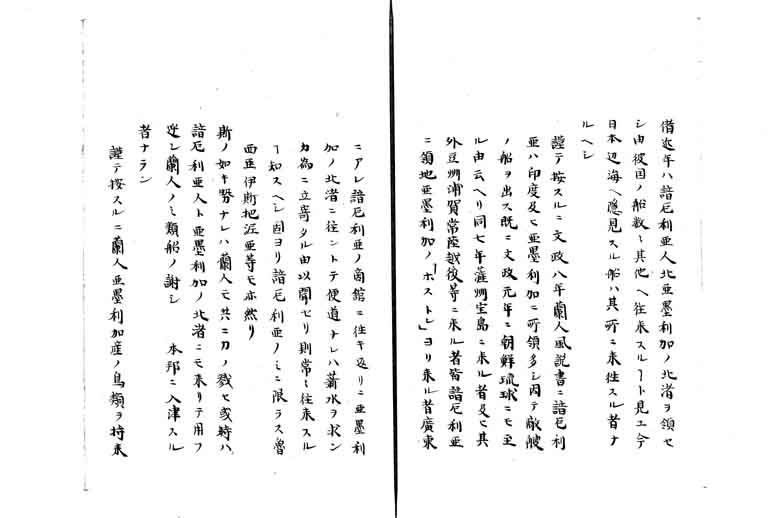 借近年ハ諳厄利亜人北亜墨利加ノ北渚ヲ領セ
シ由彼国ノ船数々其他ヘ往来スルート見エ今
日本辺海ヘ隠見スル船ハ其所ニ来往スル者ナ
ルヘシ
謹テ按スルニ文政八年蘭人風説書ニ諳厄利
亜ハ印度及ヒ亜墨利加ニ所領多シ因テ敵
ノ船ヲ出ス既ニ文政元年ニ朝鮮琉球ニモ至
ル由云ヘリ同七年薩州宝島ニ来ル者及ヒ其
外豆州浦賀常陸越後等ニ来ル者皆諳厄利亜
ニ領地亜墨利加ノ「ホストレ」ヨリ来ル者廣東
ニアル諳厄利亜ノ商館ニ往キ返リニ亜墨利
加ノ北渚ニ往ントテ便道ナレハ薪水ヲ求ン
カ為ニ立寄タル由以聞セリ則常々往来スル
ヿ知スヘシ固ヨリ諳厄利亜ノミニ限ラス魯
西亜伊斯把泥亜等モ亦然リ
斯ノ如キ勢ナレハ蘭人モ共ニ力ノ戮セ或時ハ
諳厄利亜人ト亜墨利加ノ北渚ニモ来リテ用フ
逆シ蘭人ノミ類船ノ謝シ 本邦ニ入津スル
者ナラン
謹テ按スルニ蘭人亜墨利加産ノ鳥類ヲ持来